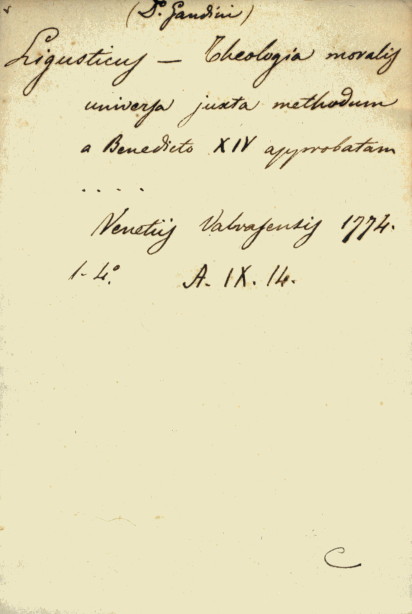 (D. Gandini)
Ligusticus — Theologia moralis
universa juxta methodum
a Benedicto XIV approbatam
. . . .
Venetiis Valvasensis 1774.
1-4.° A. IX. 14.
C